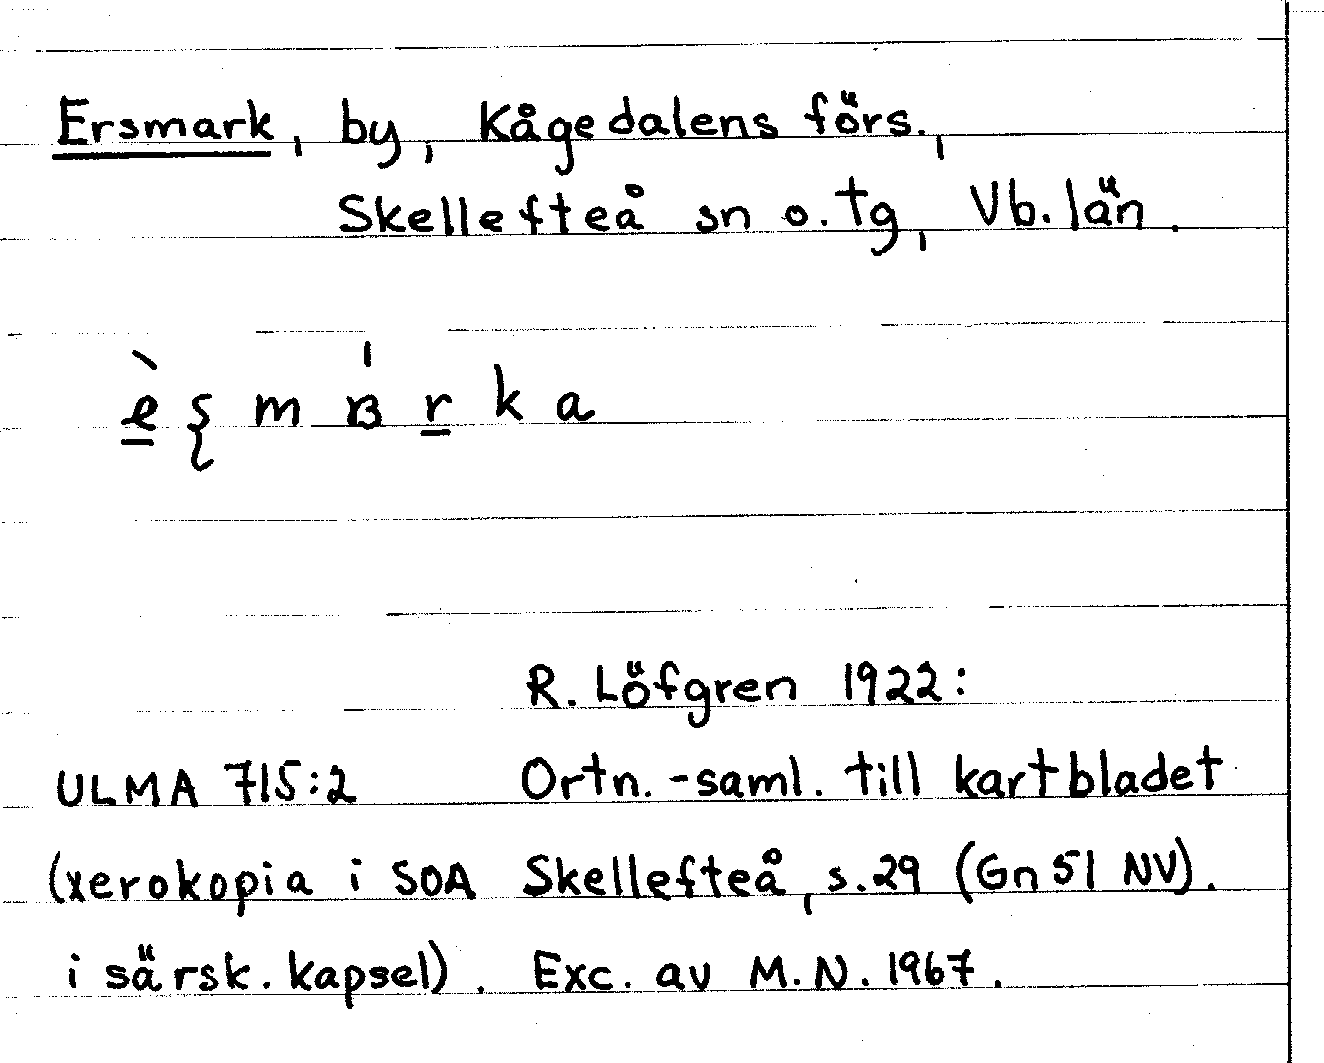 Ersmark, by, Kågedalens förs.,
Skellefteå sn o. tg, Vb. län.
R. Löfgren 1922:
ULMA 715:2 Ortn.-saml. till kartbladet
(xerokopia i SOA Skellefteå, s. 29 (Gn 51 NV).
i särsk. kapsel). Exc. av M. N. 1967.